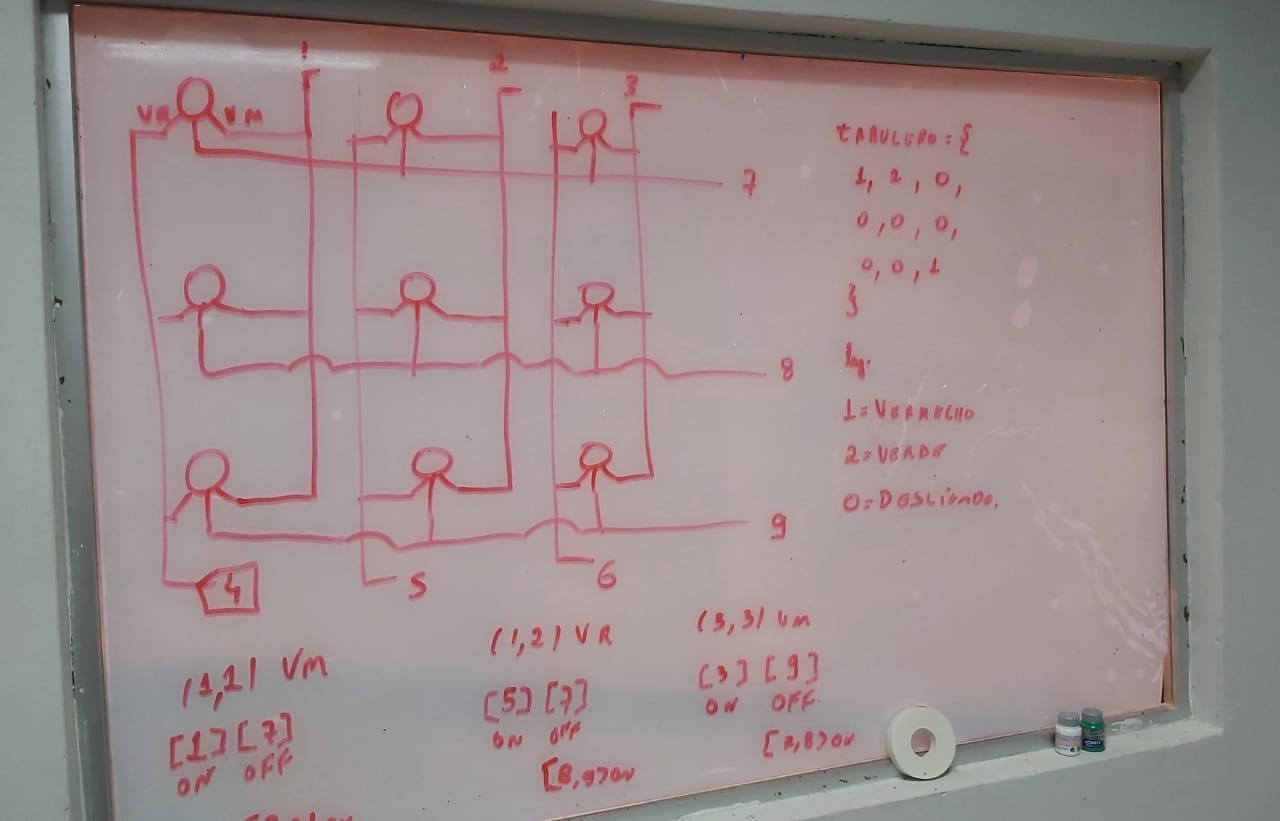 1
2
3
VR VM
7
8
9
4
5
6
tABULERO = {
1, 2, 0,
0, 0, 0,
0, 0, 1
}
1 = VERMELHO
2 = VERDE
0 = DESLIGADO.
(1,1) VM
[1] [7]
ON OFF
(1,2) VR
[5] [7]
ON OFF
[8,9] ON
(3,3) VM
[3] [9]
ON OFF